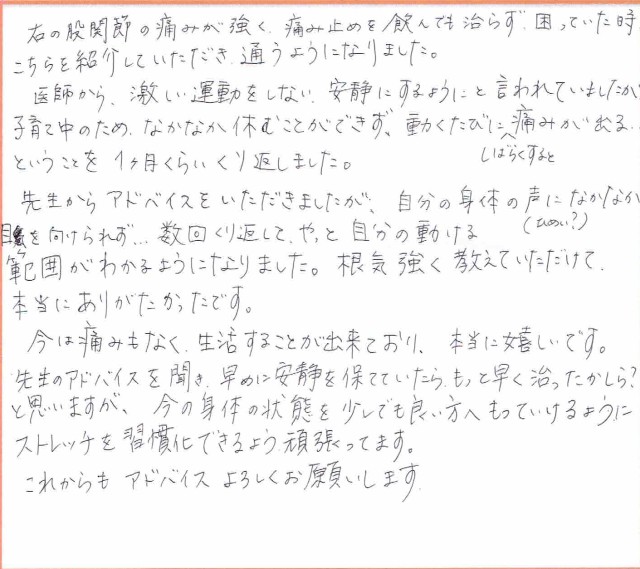 右の股関節の痛みが強く、痛み止めを飲んでも治らず、困っていた時
こちらを紹介していただき、通うようになりました。
医師から、激しい運動をしない、安静にするようにと言われていましたが
子育て中のため、なかなか休むことができず、動くたびに痛みが出る…
しばらくすると
ということを1ヶ月くらいくり返しました。
先生からアドバイスをいただきましたが、自分の身体の声になかなか
目を向けられず… 数回くり返して、やっと自分の動ける
範囲がわかるようになりました。根気強く教えていただけて、
本当にありがたかったです。
今は痛みもなく、生活することが出来ており、本当に嬉しいです。
先生のアドバイスを聞き、早めに安静を保てていたら、もっと早く治ったかしら?
と思いますが、今の身体の状態を少しでも良い方へもっていけるように
ストレッチを習慣化できるよう頑張ってます。
これからもアドバイスよろしくお願いします。